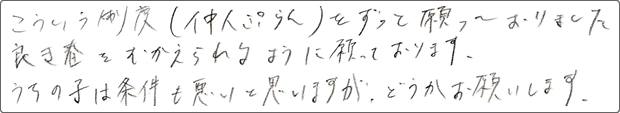 こういう制度(仲人ぷらん)をずっと願っておりました
良き春をむかえられるように願っております。
うちの子は条件も悪いと思いますが、どうかお願いします。